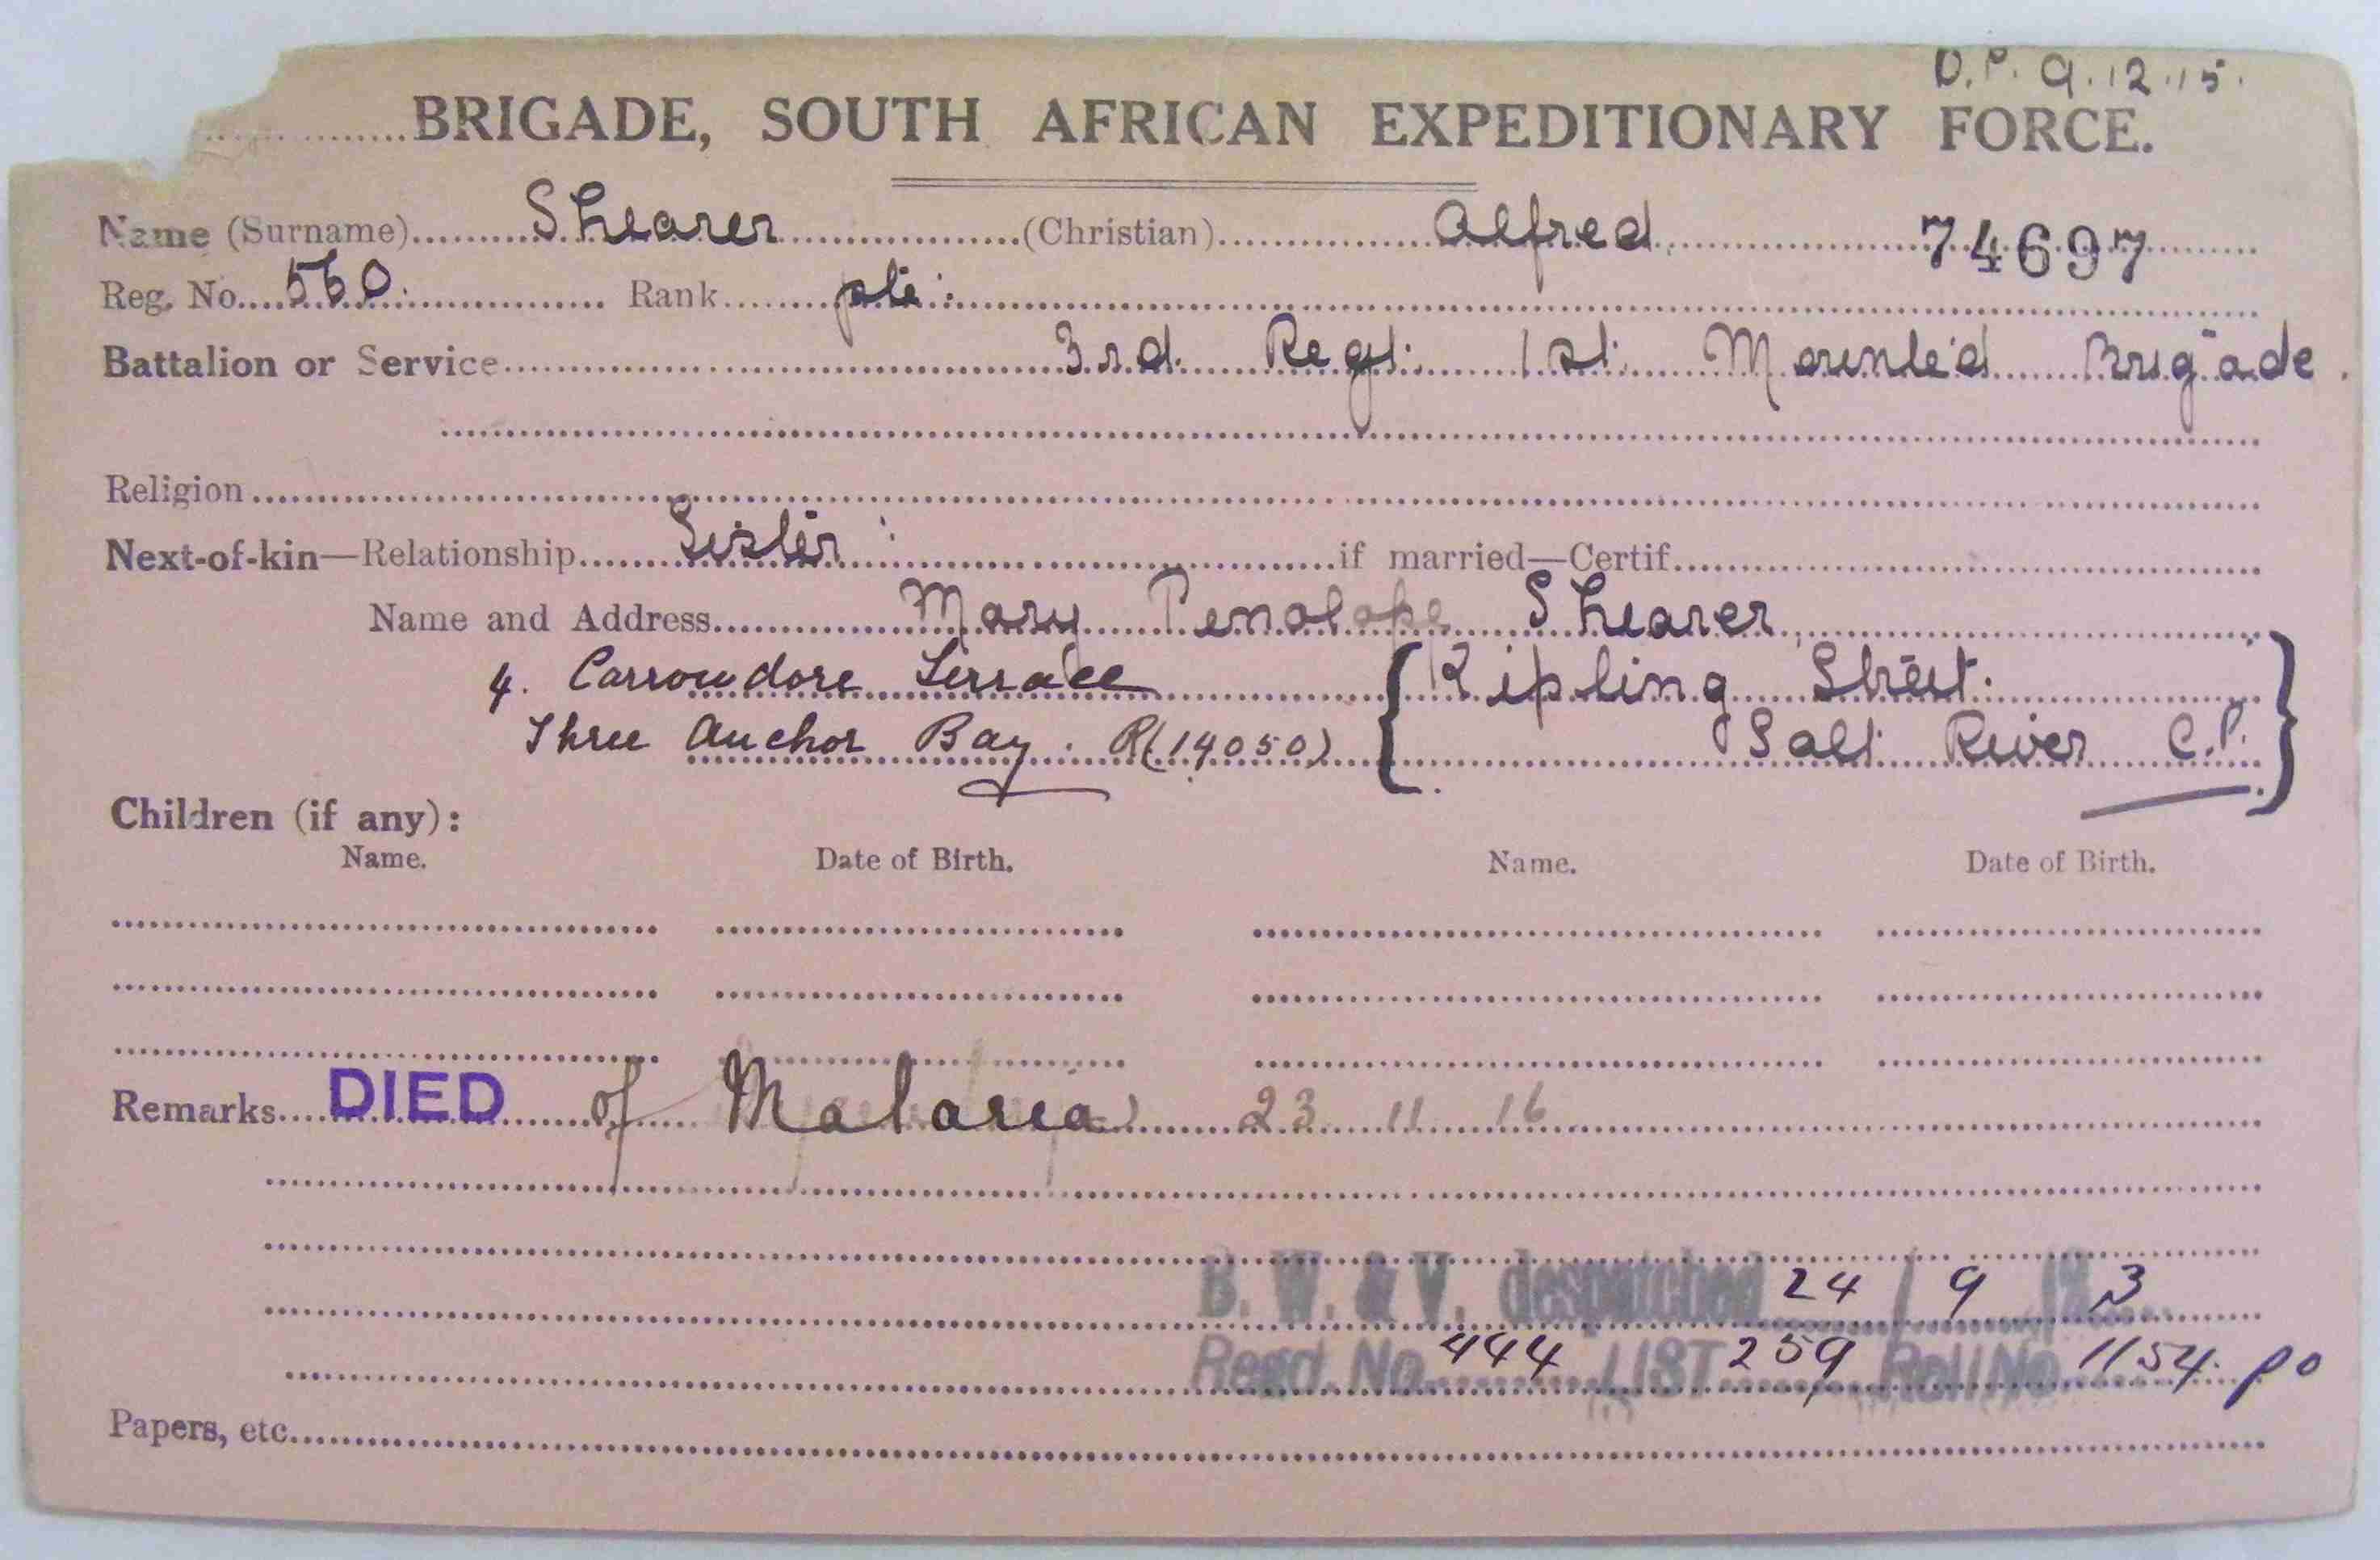 D.P. 9.12.15.
BRIGADE, SOUTH AFRICAN EXPEDITIONARY FORCE.
Name (Surname) Shearer (Christian) Alfred 74697
Reg. No. 560. Rank pte:
Battalion or Service 3rd. Regt. 1st. Mounted Brigade.
Religion
Next-of-kin—Relationship Sister: if married—Certif.
Name and Address Mary Penolope Shearer,
4. Carrowdore Terrace { Kipling Street.
Three Anchor Bay. R(14050) Salt River C.P. }
Children (if any):
Name. Date of Birth. Name. Date of Birth.
Remarks DIED of Malaria 23 11 16
B. W. & V. despatched 24 / 9 3
Regd. No. 444 LIST 259 Roll No. 1154 po
Papers, etc.